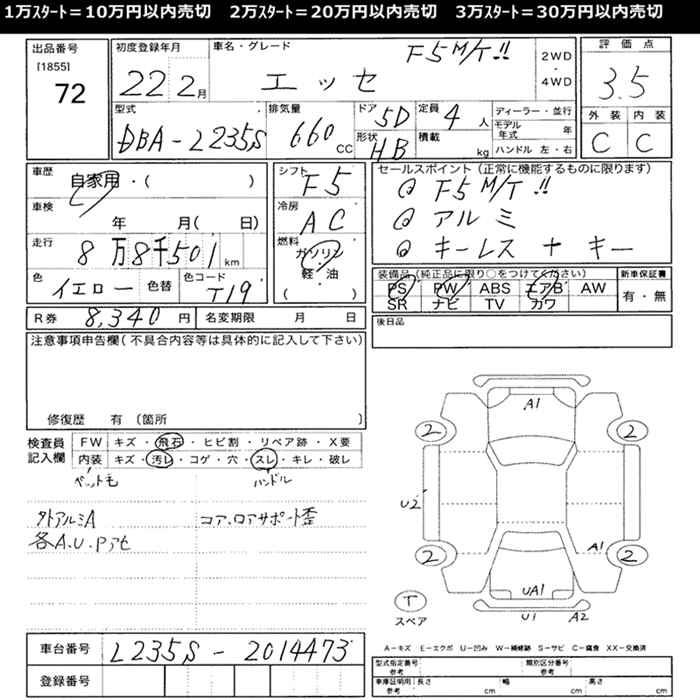 1万ｽﾀｰﾄ＝10万円以内売切　2万ｽﾀｰﾄ＝20万円以内売切　3万ｽﾀｰﾄ＝30万円以内売切
出品番号
[1855]
72
初度登録年月
22 2月
車名・グレード
F5 M/T!!
エッセ
2WD
・
4WD
評価点
3.5
外装 内装
C C
型式
DBA-L235S
排気量
660 CC
ドア 5D
形状 HB
定員 4人
積載 kg
ディーラー・並行
モデル年式 年
ハンドル 左・右
車歴
自家用・( )
車検
年 月( 日)
走行
8万8千501km
色
イエロー
色替
色コード
T19
シフト
F5
冷房
AC
燃料
ガソリン
軽・油
( )
セールスポイント (正常に機能するものに限ります)
@ F5 M/T!!
@ アルミ
@ キーレス + キー
装備品 (純正品に限り○をつけてください)
PS PW ABS エアB AW
SR ナビ TV カワ
新車保証書
有・無
R券 8,340円 名変期限 月 日
後日品
注意事項申告欄(不具合内容等は具体的に記入して下さい)
修復歴 有 〔箇所 〕
検査員
記入欄
FW キズ・飛石・ヒビ割・リペア跡・X要
内装 キズ・汚レ・コゲ・穴・スレ・キレ・破レ
ペット毛 ハンドル
外アルミA
各A.U.Pアセ
コア.ロアサポート歪
A1
2 2
U2
A1
2 2
UA1
U1 A2
T
スペア
車台番号 L235S-2014473
登録番号
A－キズ E－エクボ U－凹み W－補修跡 S－サビ C－腐食 XX－交換済
型式指定番号 参考
類別区分番号 参考
車庫証明用 参考
長さ cm 幅 cm 高さ cm